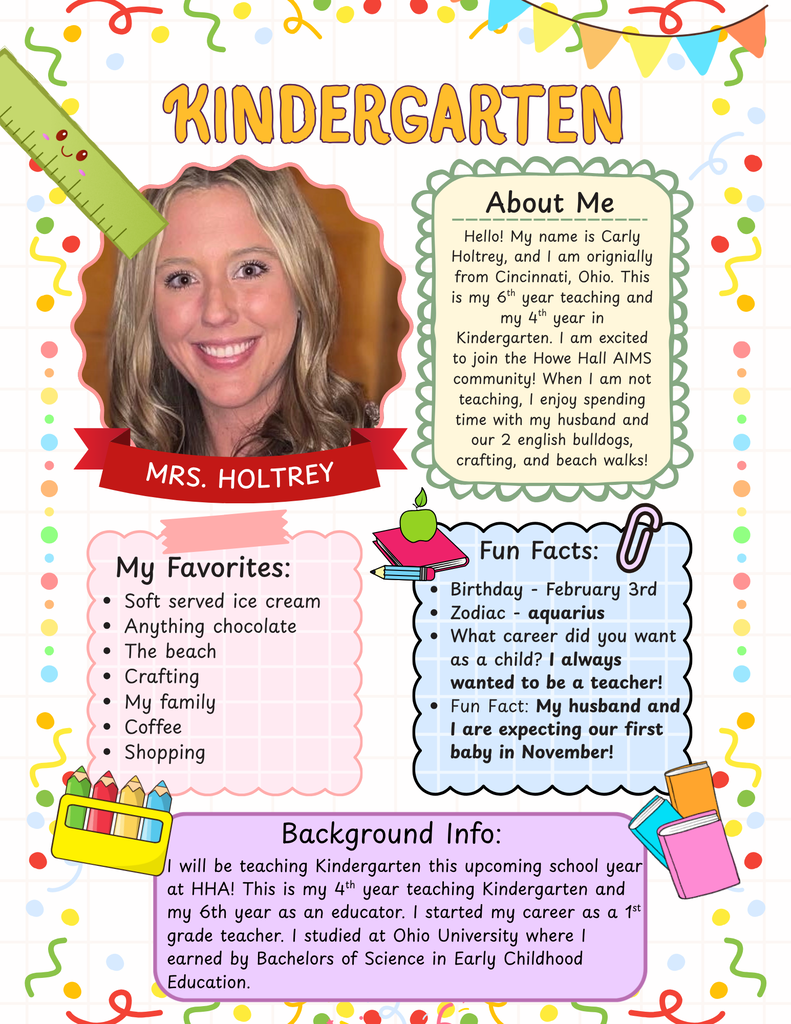 KINDERGARTEN
MRS. HOLTREY
About Me
Hello! My name is Carly
Holtrey, and I am orignially
from Cincinnati, Ohio. This
is my 6th year teaching and
my 4th year in
Kindergarten. I am excited
to join the Howe Hall AIMS
community! When I am not
teaching, I enjoy spending
time with my husband and
our 2 english bulldogs,
crafting, and beach walks!
My Favorites:
• Soft served ice cream
• Anything chocolate
• The beach
• Crafting
• My family
• Coffee
• Shopping
Fun Facts:
• Birthday - February 3rd
• Zodiac - aquarius
• What career did you want
as a child? I always
wanted to be a teacher!
• Fun Fact: My husband and
I are expecting our first
baby in November!
Background Info:
I will be teaching Kindergarten this upcoming school year
at HHA! This is my 4th year teaching Kindergarten and
my 6th year as an educator. I started my career as a 1st
grade teacher. I studied at Ohio University where I
earned by Bachelors of Science in Early Childhood
Education.